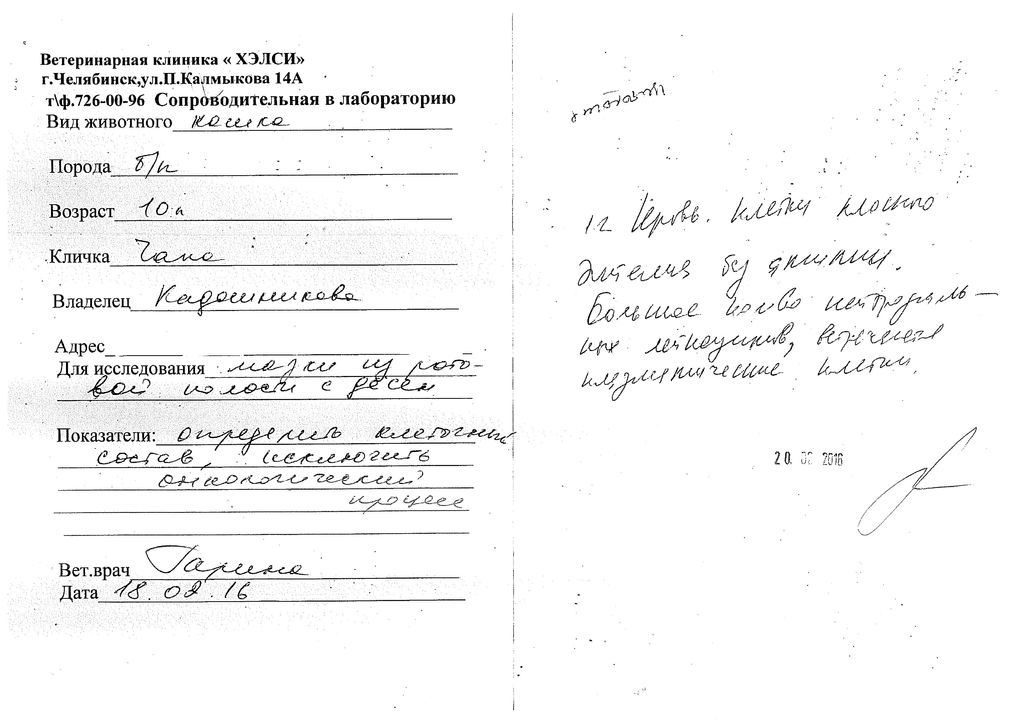 Ветеринарная клиника « ХЭЛСИ»
г.Челябинск,ул.П.Калмыкова 14А
т\ф.726-00-96 Сопроводительная в лабораторию
Вид животного кошка
Порода б/п
Возраст 10 л
Кличка Чапа
Владелец Кадошникова
Адрес
Для исследования мазки из рото-
вой полости с десен
Показатели: определить клеточный
состав, исключить
онкологический
процесс
Вет.врач Гарина
Дата 18.02.16
Кровь. Клетки плоского
эпителия без атипии.
Большое кол-во нейтрофиль-
ных лейкоцитов, встречаются
плазматические клетки.
20. 02 2016